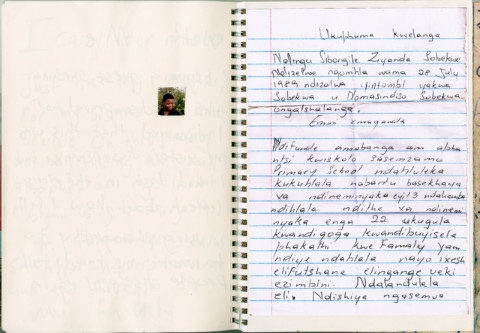 Ukuphuma kwelanga
Ndingu Sibongile Ziyanda Sobekwe
Ndizelwe ngomhla wama 28 July
1989 ndizalwa yintombi yakwa
Sobekwa u Nomasindiso Sobekwa
ongatshatanga.
Emni emaganda
Ndifunde amabanga am alpha
ntsi kwiskolo sasemzamo
Primary School ndahluleka
kukuhlala nabantu basekhaya
xa ndineminyaka eyi13 ndahamba
ndihlala ndithe xa ndinem
nyaka enga 22 ukugula
kwandigoga kwandibuyisela
phakathi kwe Famaly yam
ndiye ndahlala nayo ixesh
eliFutshane elingange veki
ezimbini. Ndalandulela
eli. Ndishiye ngasemva